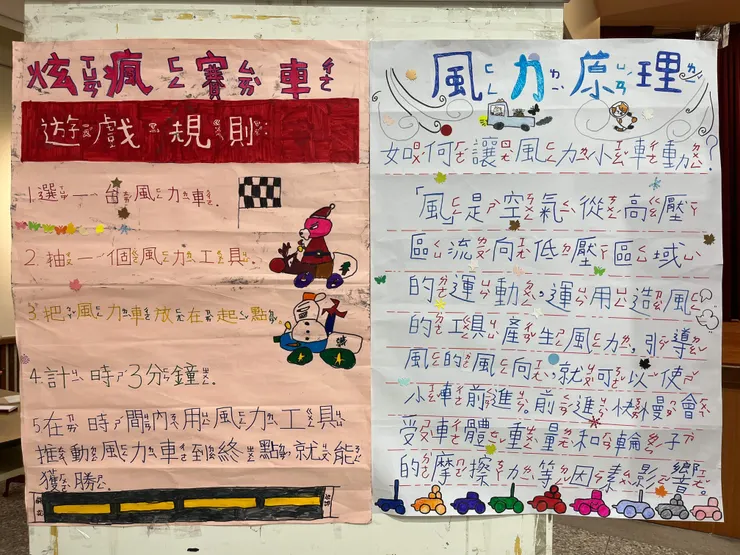 炫瘋賽車
遊戲規則:
1.選一台風力車.
2.抽一個風力工具.
3.把風力車放在起點.
4.計時3分鐘.
5.在時間內用風力工具
推動風力車到終點就能
獲勝.
風力原理
如何讓風力小車動?
「風」是空氣從高壓
區流向低壓區域
的運動,運用造風
的工具產生風力,引導
風的風向,就可以使
小車前進。前進快慢會
受車體重量和輪子
的摩擦力等因素影響。